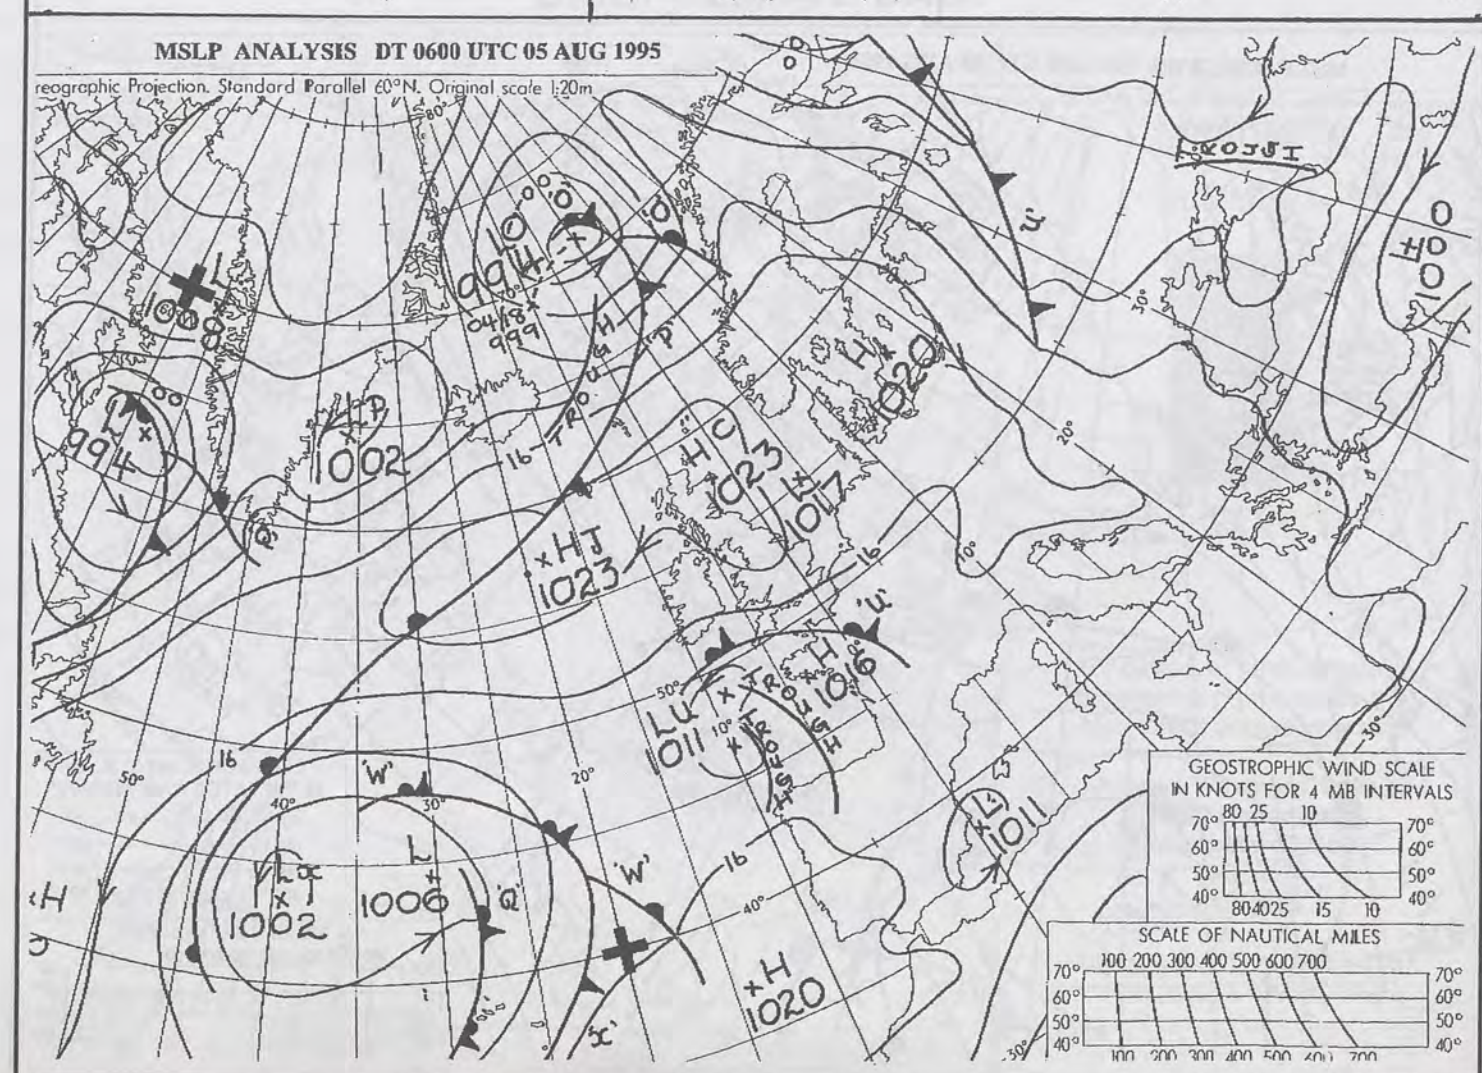 MSLP ANALYSIS DT 0600 UTC 05 AUG 1995
reographic Projection. Standard Parallel 60°N. Original scale 1:20m
80°
TROUGH
'U'
30°
994
04/18
999
TROUGH
'P'
'O'
L
1008
L
994
1002
16
H
1020
20°
H
1023
L
1017
10°
x HJ
1023
16
'U'
50°
LU
1011
10°
TROUGH
TROUGH
H
1016
16
50°
40°
'W'
30°
20°
L
1002
L
1006
'Q'
'W'
16
40°
'X'
x H
1020
L
1011
30°
30°
H
GEOSTROPHIC WIND SCALE
IN KNOTS FOR 4 MB INTERVALS
80 25 10
70° 70°
60° 60°
50° 50°
40° 40°
80 40 25 15 10
SCALE OF NAUTICAL MILES
100 200 300 400 500 600 700
70° 70°
60° 60°
50° 50°
40° 40°
100 200 300 400 500 600 700